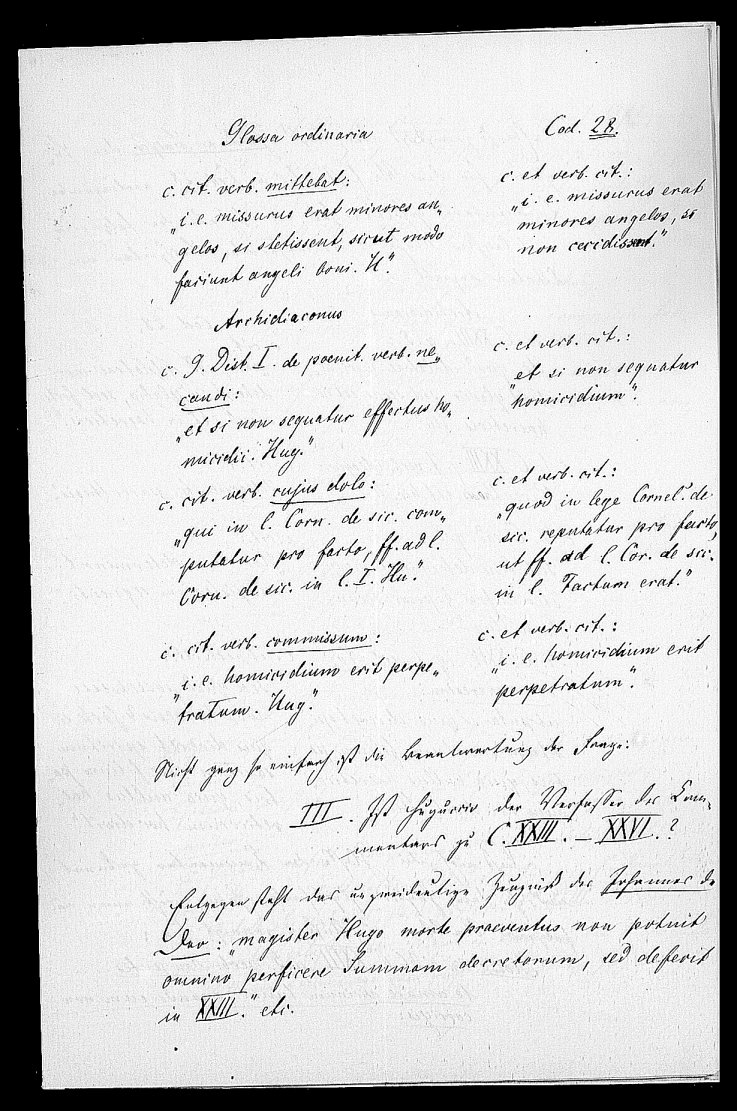 Glossa ordinaria
c. cit. verb. mittebat:
„i. e. missurus erat minores an-
gelos, si stetissent, sicut modo
faciunt angeli boni. H."
Archidiaconus
c. 9. Dist. I. de poenit. verb. ne-
candi:
„et si non sequatur effectus ho-
micidii. Hug."
c. cit. verb. cujus dolo:
„qui in l. Corn. de sic. com-
putatur pro facto, ff. ad l.
Corn. de sic. in l. I. Hu."
c. cit. verb. commissum:
„i. e. homicidium erit perpe-
tratum. Hug."
Cod. 28.
c. et verb. cit.:
„i. e. missurus erat
minores angelos, si
non cecidissent."
c. et verb. cit.:
„et si non sequatur
homicidium".
c. et verb. cit.:
„quod in lege Cornel. de
sic. reputatur pro facto,
ut ff. ad l. Cor. de sic.
in l. Factum erat."
c. et verb. cit.:
„i. e. homicidium erit
perpetratum".
Nicht ganz so einfach ist die Beantwortung der Frage:
III. Ist Huguccio der Verfasser des Com-
mentars zu C. XXIII. – XXVI.?
Entgegen steht das unzweideutige Zeugniß des Johannes de
Deo: „magister Hugo morte praeventus non potuit
omnino perficere Summam decretorum, sed deferit
in XXIII." etc.